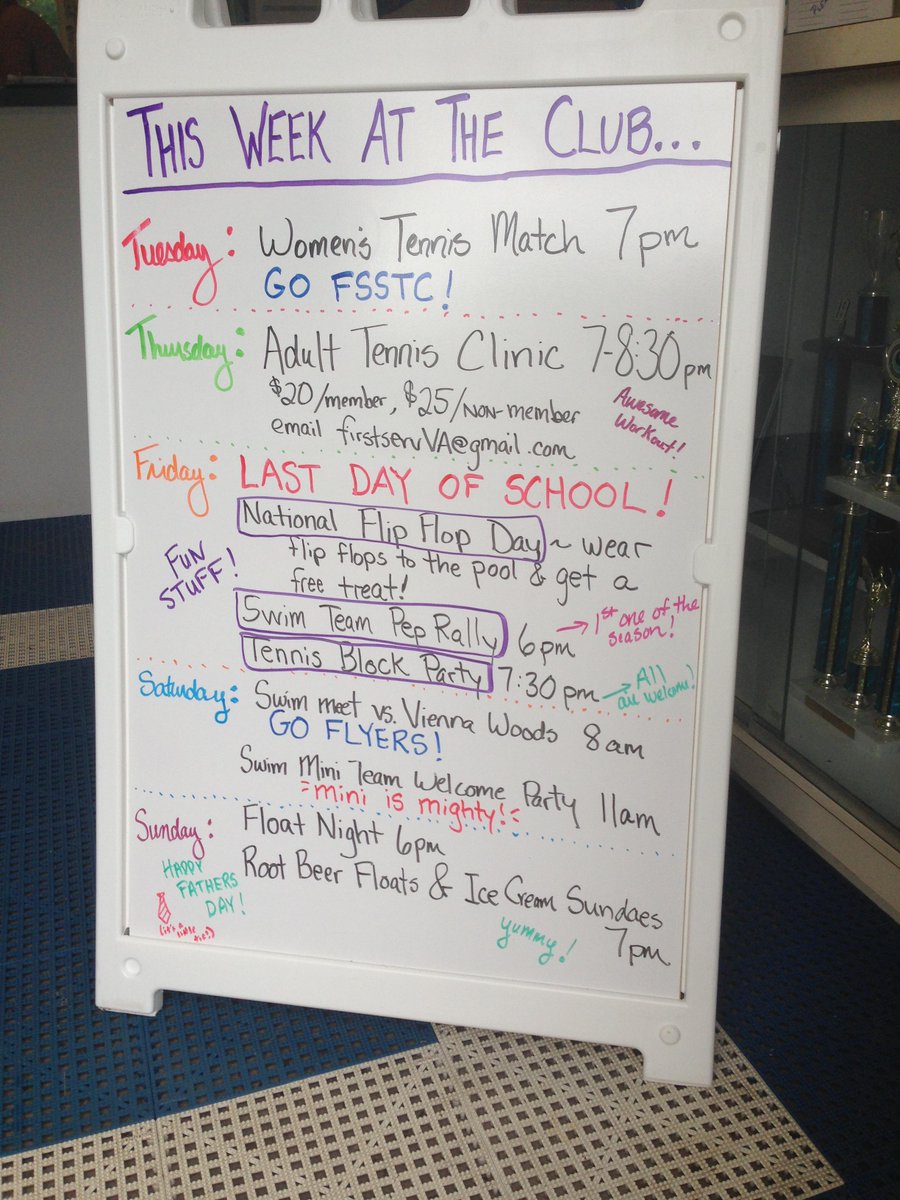 THIS WEEK AT THE CLUB...
Tuesday: Women's Tennis Match 7pm
GO FSSTC!
Thursday: Adult Tennis Clinic 7-8:30pm
$20/member, $25/NON-member
email firstservVA@gmail.com
Awesome
Workout!
Friday: LAST DAY OF SCHOOL!
National Flip Flop Day ~ wear
flip flops to the pool & get a
free treat!
FUN
STUFF!
Swim Team Pep Rally 6pm → 1st one of the
season!
Tennis Block Party 7:30 pm → All
are welcome!
Saturday: Swim meet vs. Vienna Woods 8am
GO FLYERS!
Swim Mini Team Welcome Party 11am
mini is mighty!
Sunday: Float Night 6pm
Root Beer Floats & Ice Cream Sundaes
7pm
HAPPY
FATHERS
DAY!
(it's a
yummy!